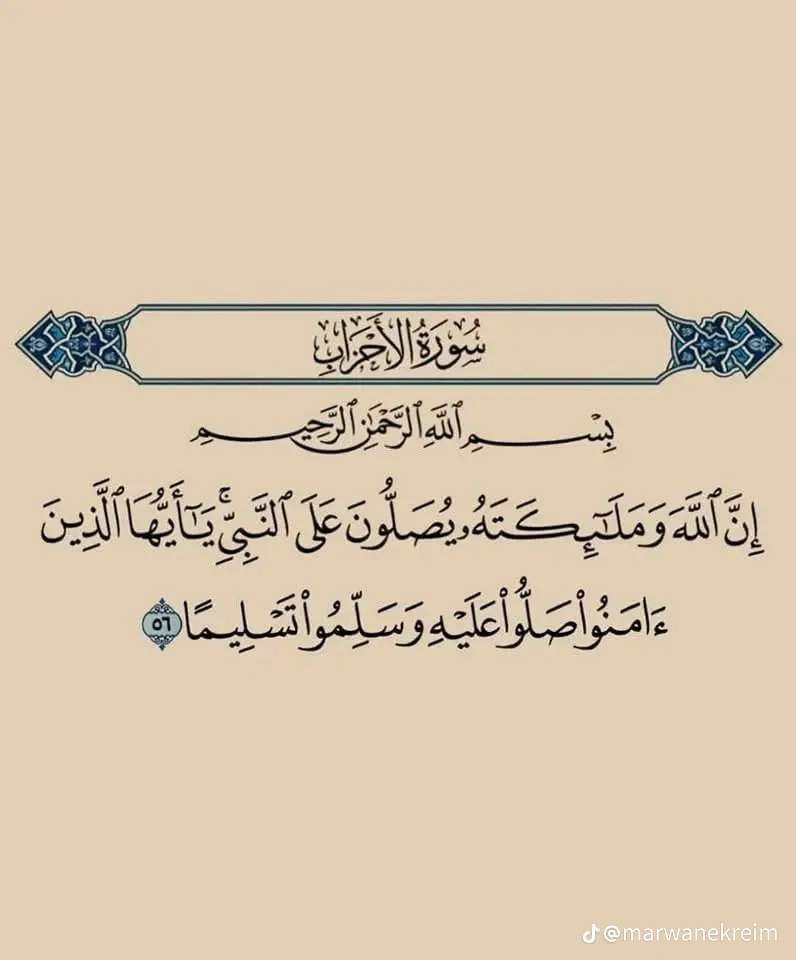 سُورَةُ الأَحْزَابِ
بِسْمِ ٱللَّهِ ٱلرَّحْمَٰنِ ٱلرَّحِيمِ
إِنَّ ٱللَّهَ وَمَلَـٰٓئِكَتَهُۥ يُصَلُّونَ عَلَى ٱلنَّبِيِّۚ يَـٰٓأَيُّهَا ٱلَّذِينَ
ءَامَنُوا۟ صَلُّوا۟ عَلَيْهِ وَسَلِّمُوا۟ تَسْلِيمًا ٥٦
@marwanekreim